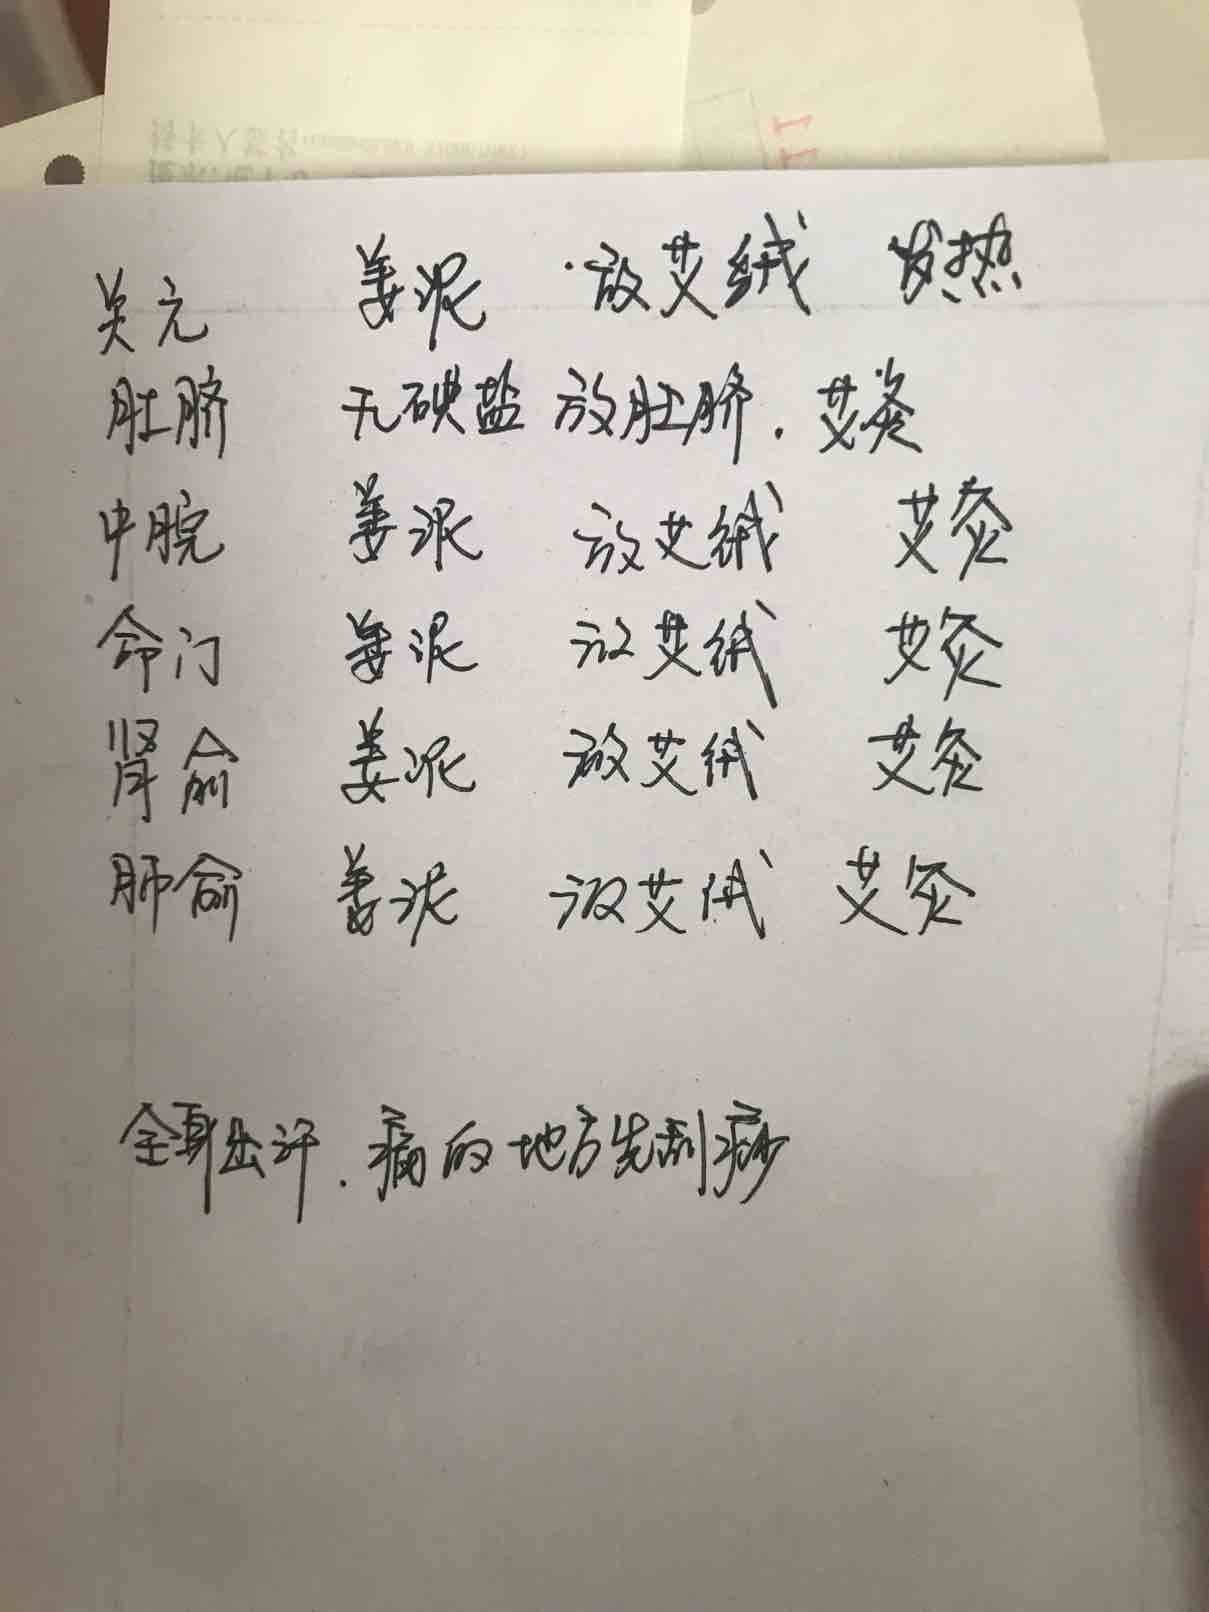 关元 姜泥 放艾绒 发热
肚脐 无碘盐 放肚脐.艾灸
中脘 姜泥 放艾绒 艾灸
命门 姜泥 放艾绒 艾灸
肾俞 姜泥 放艾绒 艾灸
肺俞 姜泥 放艾绒 艾灸
全身出汗.痛的地方先刮痧